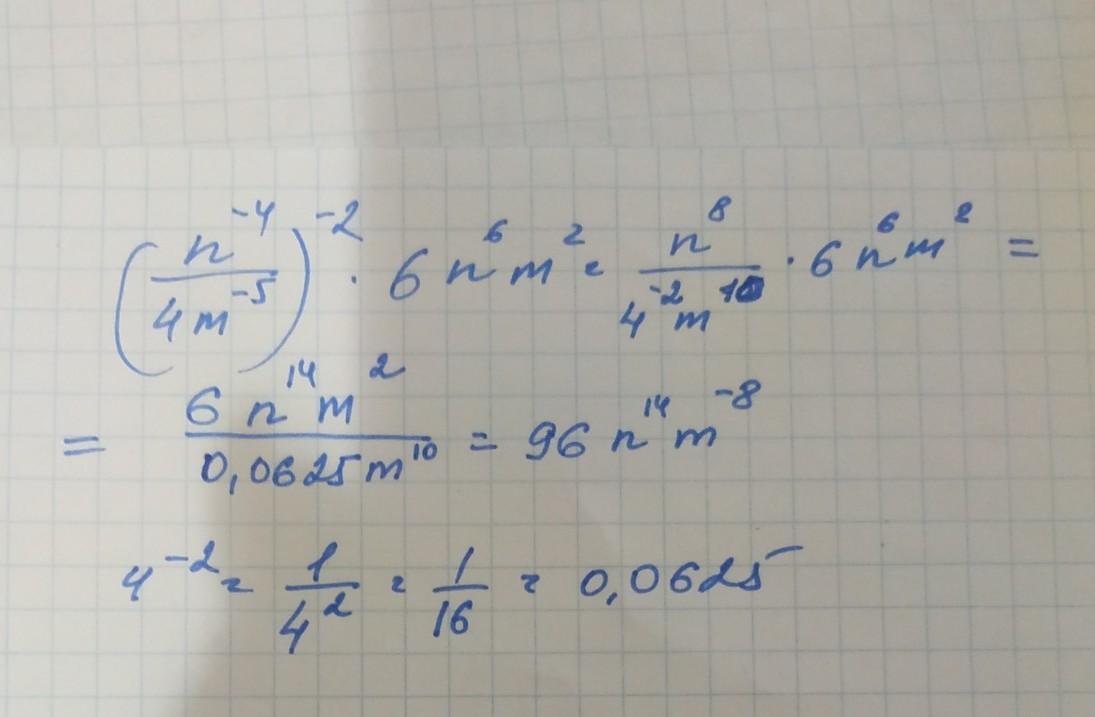 (n⁻⁴/4m⁻⁵)⁻² · 6n⁶m² = n⁸/4⁻²m¹⁰ · 6n⁶m² =
= 6n¹⁴m²/0,0625m¹⁰ = 96n¹⁴m⁻⁸
4⁻² = 1/4² = 1/16 = 0,0625